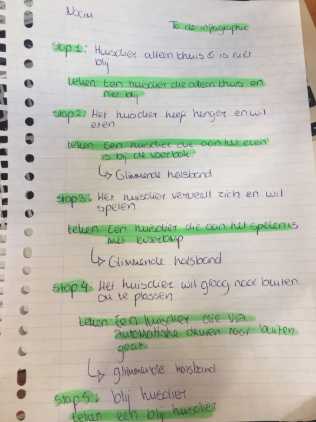 NOOM
To do infographic
Stap 1: Huisdier alleen thuis & is niet
blij
Teken Een huisdier die alleen thuis en
niet blij
Stap 2: Het huisdier heeft honger en wil
eten
teken Een huisdier die aan het eten
is bij de voerbak
↳ Glimmende halsband
Stap 3: Het huisdier verveelt zich en wil
spelen
teken: Een huisdier die aan het spelen is
met
↳ Glimmende halsband
Stap 4: Het huisdier wil graag naar buiten
om te plassen
teken Een huisdier die via
automatische deuren naar buiten
gaat
↳ glimmende halsband
Stap 5: blij huisdier
teken een blij huisdier